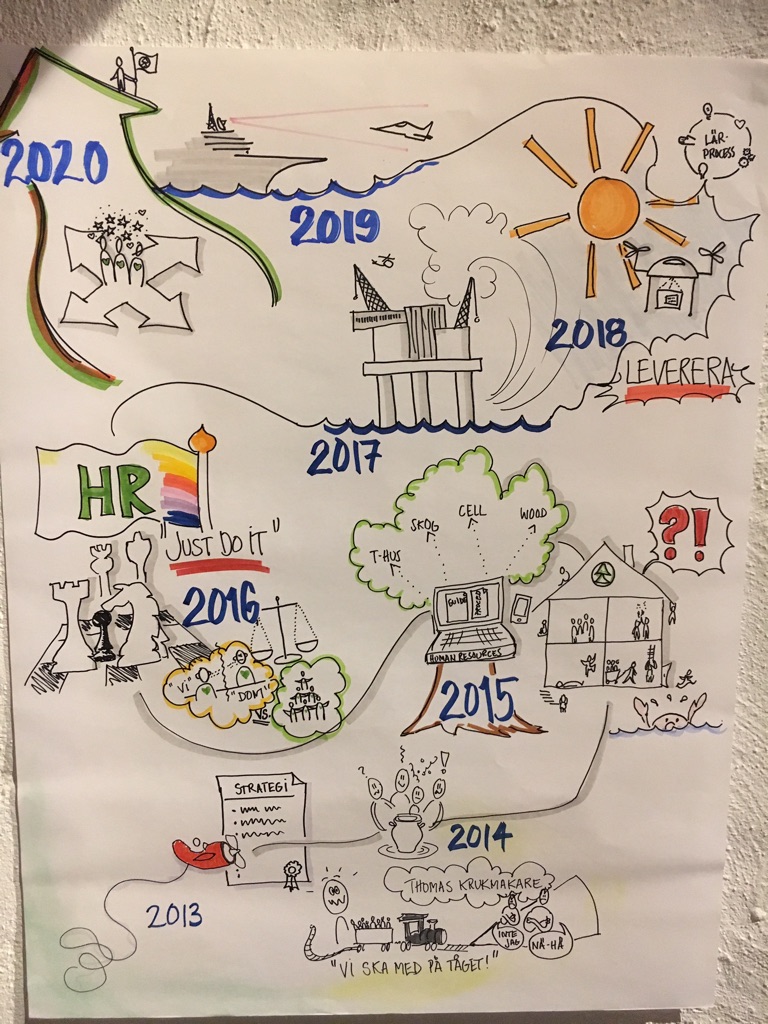 2020
2019
LÄR-
PROCESS
2018
LEVERERA
2017
HR
"JUST DO IT"
2016
"VI"
"DOM"
VS.
T-HUS
SKOG
CELL
WOOD
GUIDE
PROCESS
HUMAN RESOURCES
2015
?!
STRATEGI
2014
2013
THOMAS KRUKMAKARE
INTE
JAG
NÄ-HÄ
"VI SKA MED PÅ TÅGET!"